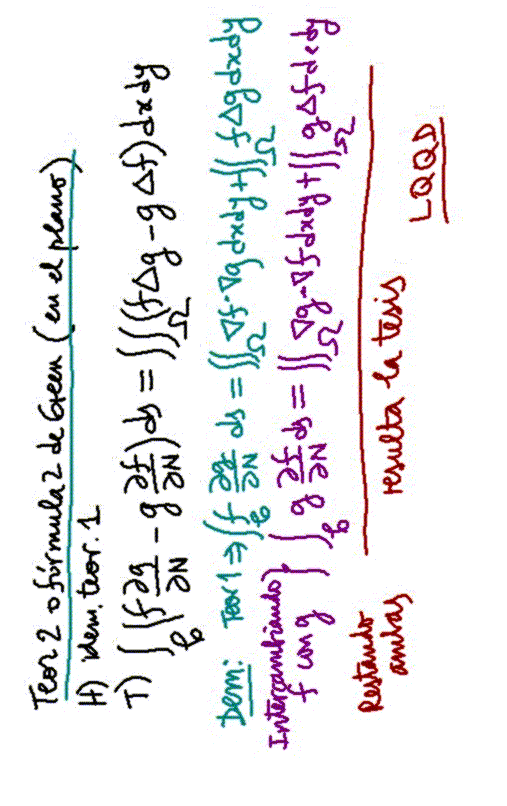 Teor 2 o fórmula 2 de Green (en el plano)
H) idem. teor. 1
T) ∫_b (f ∂g/∂N - g ∂f/∂N) ds = ∬_Ω (f Δg - g Δf) dx dy
Dem: Teor 1 ⇒ ∫_b f ∂g/∂N ds = ∬_Ω ∇f·∇g dx dy + ∬_Ω f Δg dx dy
Intercambiando f con g } ∫_b g ∂f/∂N ds = ∬_Ω ∇g·∇f dx dy + ∬_Ω g Δf dx dy
Restando ambas resulta la tesis
LQQD